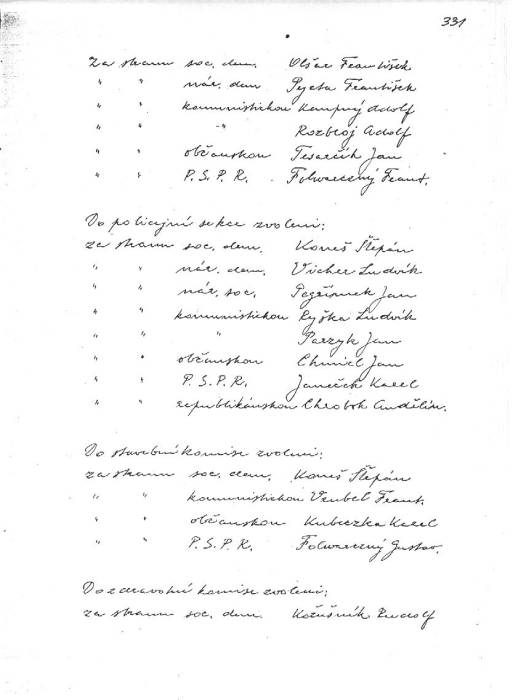 331
Za stranu soc. dem. Olšar František
" " nár. dem Pycta František
" " komunistickou Kampný Adolf
" " -"- Rozbroj Adolf
" " občanskou Tesarčík Jan
" " P. S. P. R. Folwarczný Frant.
Do policejní sekce zvoleni:
za stranu soc. dem. Koneš Štěpán
" " nár. dem. Vicher Ludvík
" " nár. soc. Jan
" " komunistickou Ryška Ludvík
" " " Parzyk Jan
" " občanskou Chmiel Jan
" " P. S. P. R. Janeček Karel
" " republikánskou Chrobok Andělín.
Do stavební komise zvoleni:
za stranu soc. dem. Koneš Štěpán
" " komunistickou Venbel Frant.
" " občanskou Kubiczka Karel
" " P. S. P. R. Folwarczný Gustav.
Do zdravotní komise zvoleni:
za stranu soc. dem. Kožušník Rudolf